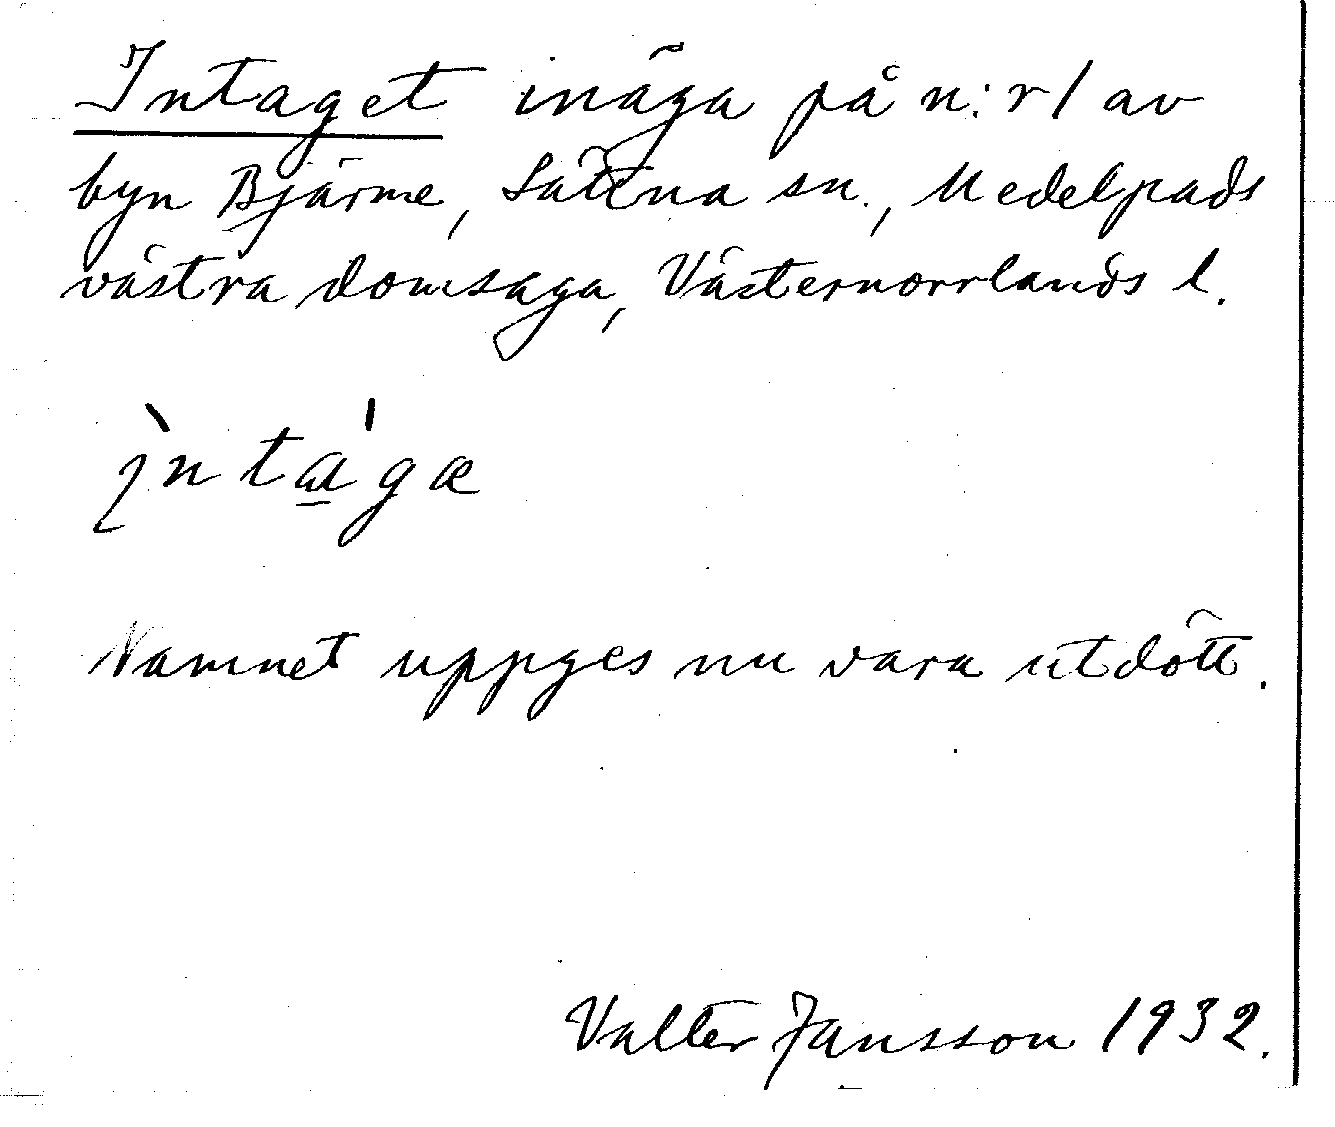 Intaget inäga på n:r 1 av
byn Bjärme, Sättna sn., Medelpads
västra domsaga, Västernorrlands l.
ìntа̲́gæ
Namnet uppges nu vara utdött.
Valter Jansson 1932.